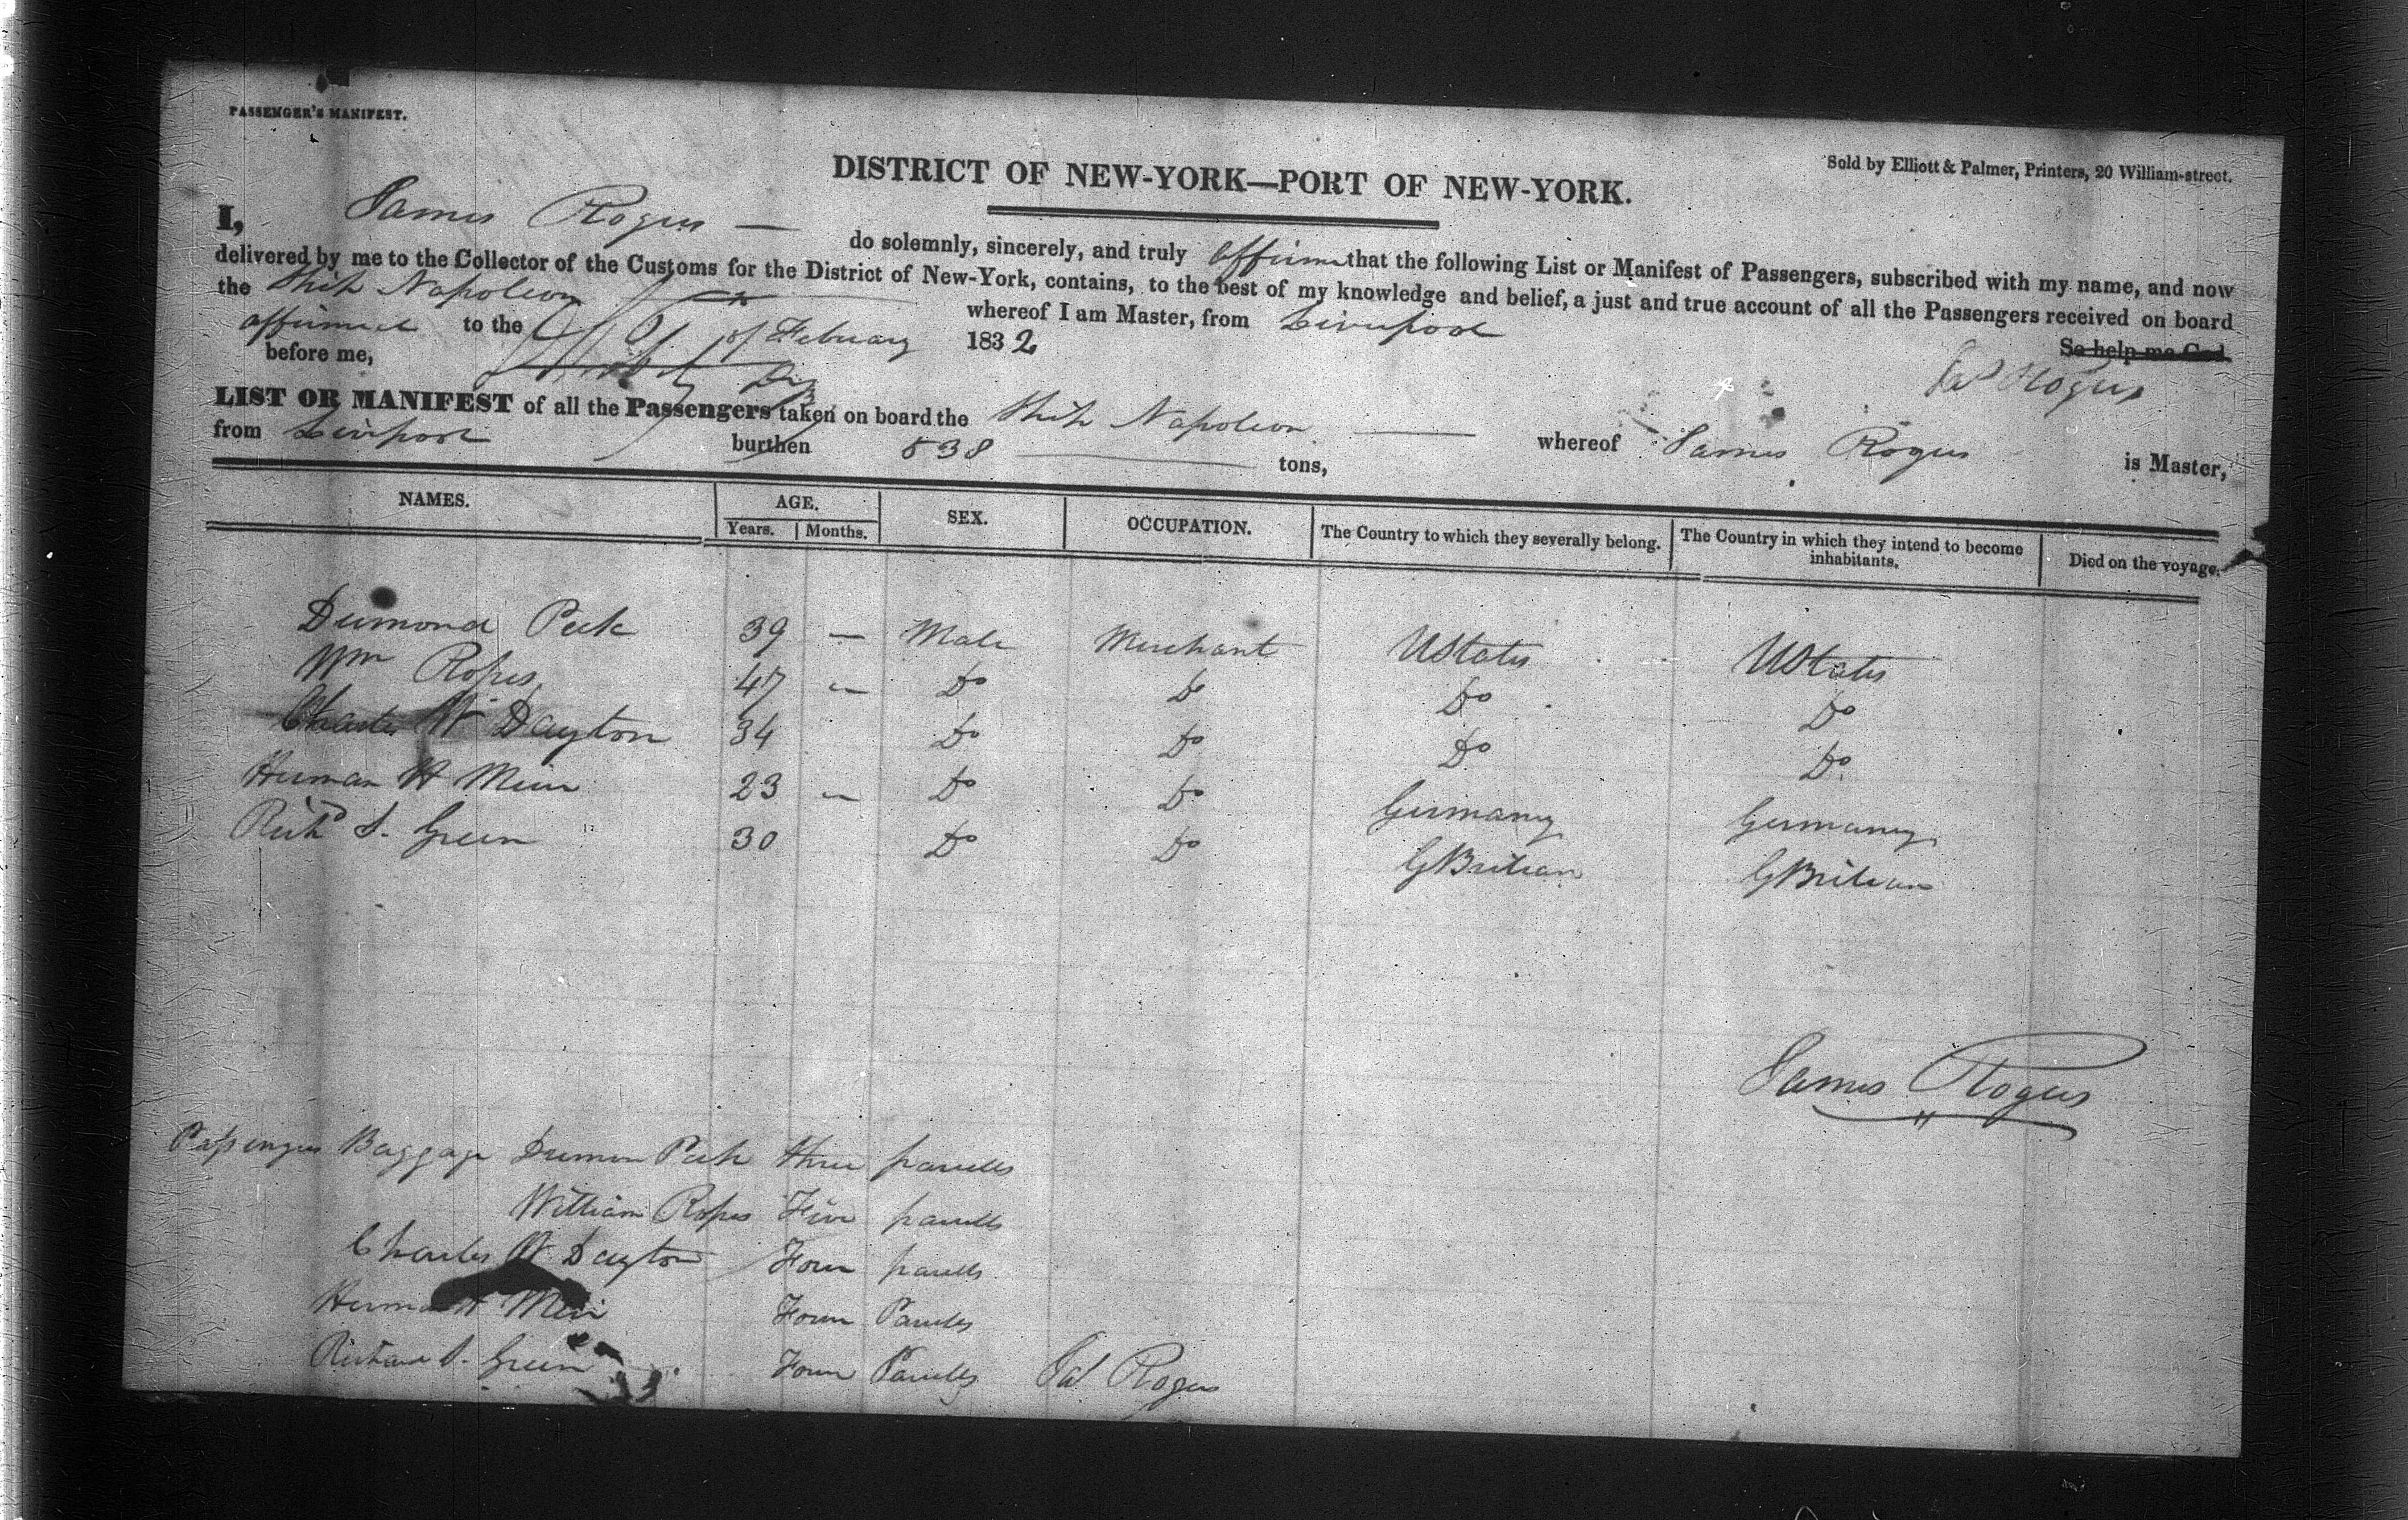 PASSENGER'S MANIFEST.
Sold by Elliott & Palmer, Printers, 20 William-street.
DISTRICT OF NEW-YORK—PORT OF NEW-YORK.
I, James Rogers — do solemnly, sincerely, and truly affirm that the following List or Manifest of Passengers, subscribed with my name, and now
delivered by me to the Collector of the Customs for the District of New-York, contains, to the best of my knowledge and belief, a just and true account of all the Passengers received on board
the Ship Napoleon whereof I am Master, from Liverpool
So help me God.
affirmed to the of February 1832
before me,
Jas Rogers
LIST OR MANIFEST of all the Passengers taken on board the Ship Napoleon — whereof James Rogers is Master,
from Liverpool burthen 538 tons,
NAMES. AGE. SEX. OCCUPATION. The Country to which they severally belong. The Country in which they intend to become inhabitants. Died on the voyage.
Years. Months.
Dumond Peck 39 — Male Merchant UStates UStates
Wm Ropes 47 — Do Do Do Do
Charles W Dayton 34 Do Do Do Do
Herman H Meir 23 — Do Do Germany Germany
Richd S. Green 30 Do Do GBritian GBritian
James Rogers
Passengers Baggage Dumon Peck three parcells
William Ropes Five parcells
Charles W Dayton Four parcells
Herman H Meir Four Parcells
Richard S. Green Four Parcells Jas Rogers